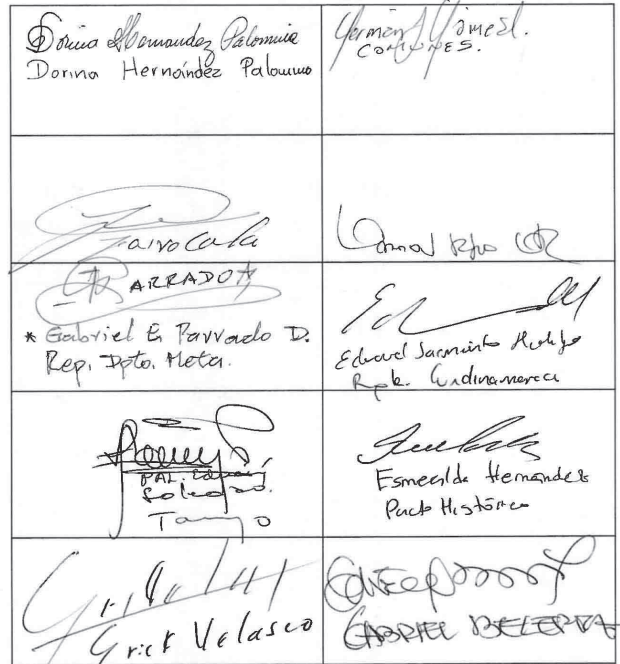 Dorina Hernández Palomino
Dorina Hernández Palomino
Germán Gómez
COMUNES.
Jairo Cala
PARRADO
* Gabriel E. Parrado D.
Rep. Dpto. Meta.
Eduard Sarmiento Hidalgo
Rep. Cundinamarca
Esmeralda Hernández
Pacto Histórico
Erick Velasco
GABRIEL BECERRA